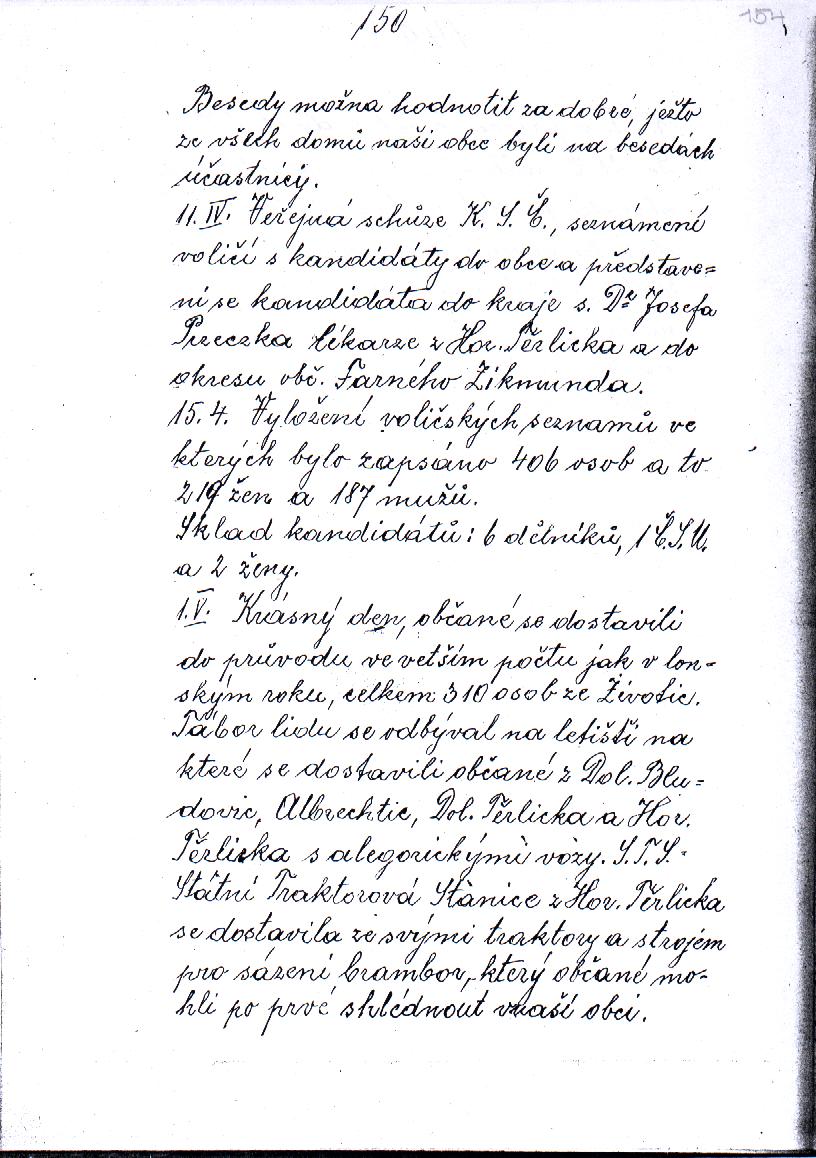 150
154
Besedy možna hodnotit za dobré, ježto
ze všech domů naši obce byli na besedách
účastnící.
11. IV. Veřejná schůze K. S. Č., seznámení
voličí s kandidáty do obce a představe=
ní se kandidáta do kraje s. Dr Josefa
Pszeczka lékarze z Hor. Těrlicka a do
okresu obč. Farného Zikmunda.
15. 4. Vyložení voličských seznamů ve
kterých bylo zapsáno 406 osob a to
219 žen a 187 mužů.
Sklad kandidátů: 6 dělníků, 1 Č.S.M.
a 2 ženy.
1. V. Krásný den, občané se dostavili
do průvodu ve vetším počtu jak v lon-
ským roku, celkem 310 osob ze Životic.
Tábor lidu se odbýval na letišti na
které se dostavili občané z Dol. Blu=
dovic, Albrechtic, Dol. Těrlicka a Hor.
Těrlicka s alegorickými vozy. S.T.S.-
Státní Traktorová Stanice z Hor. Těrlicka
se dostavila ze svými traktory a strojem
pro sázení brambor, který občané mo-
hli po prvé shlédnout v naší obci.